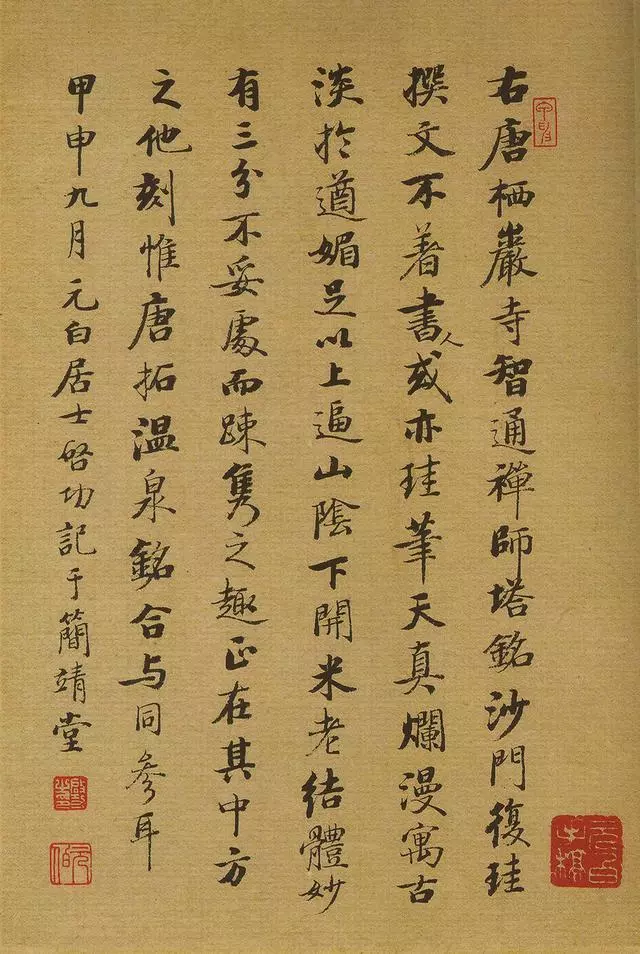 右唐栖巖寺智通禪師塔銘沙門復珪
撰文不著書人或亦珪筆天真爛漫寓古
淡於遒媚足以上逼山陰下開米老結體妙
有三分不妥處而踈雋之趣正在其中方
之他刻惟唐拓温泉銘合与同參耳
甲申九月元白居士啓功記于簡靖堂
啟功
元白